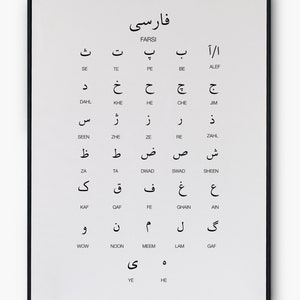 فارسی
FARSI
ا/آ ب پ ت ث
SE TE PE BE ALEF
ج چ ح خ د
DAHL KHE HE CHE JIM
ذ ر ز ژ س
SEEN ZHE ZE RE ZAHL
ش ص ض ط ظ
ZA TA DWAD SWAD SHEEN
ع غ ف ق ک
KAF QAF FE GHAIN AIN
گ ل م ن و
WOW NOON MEEM LAM GAF
ه ی
YE HE